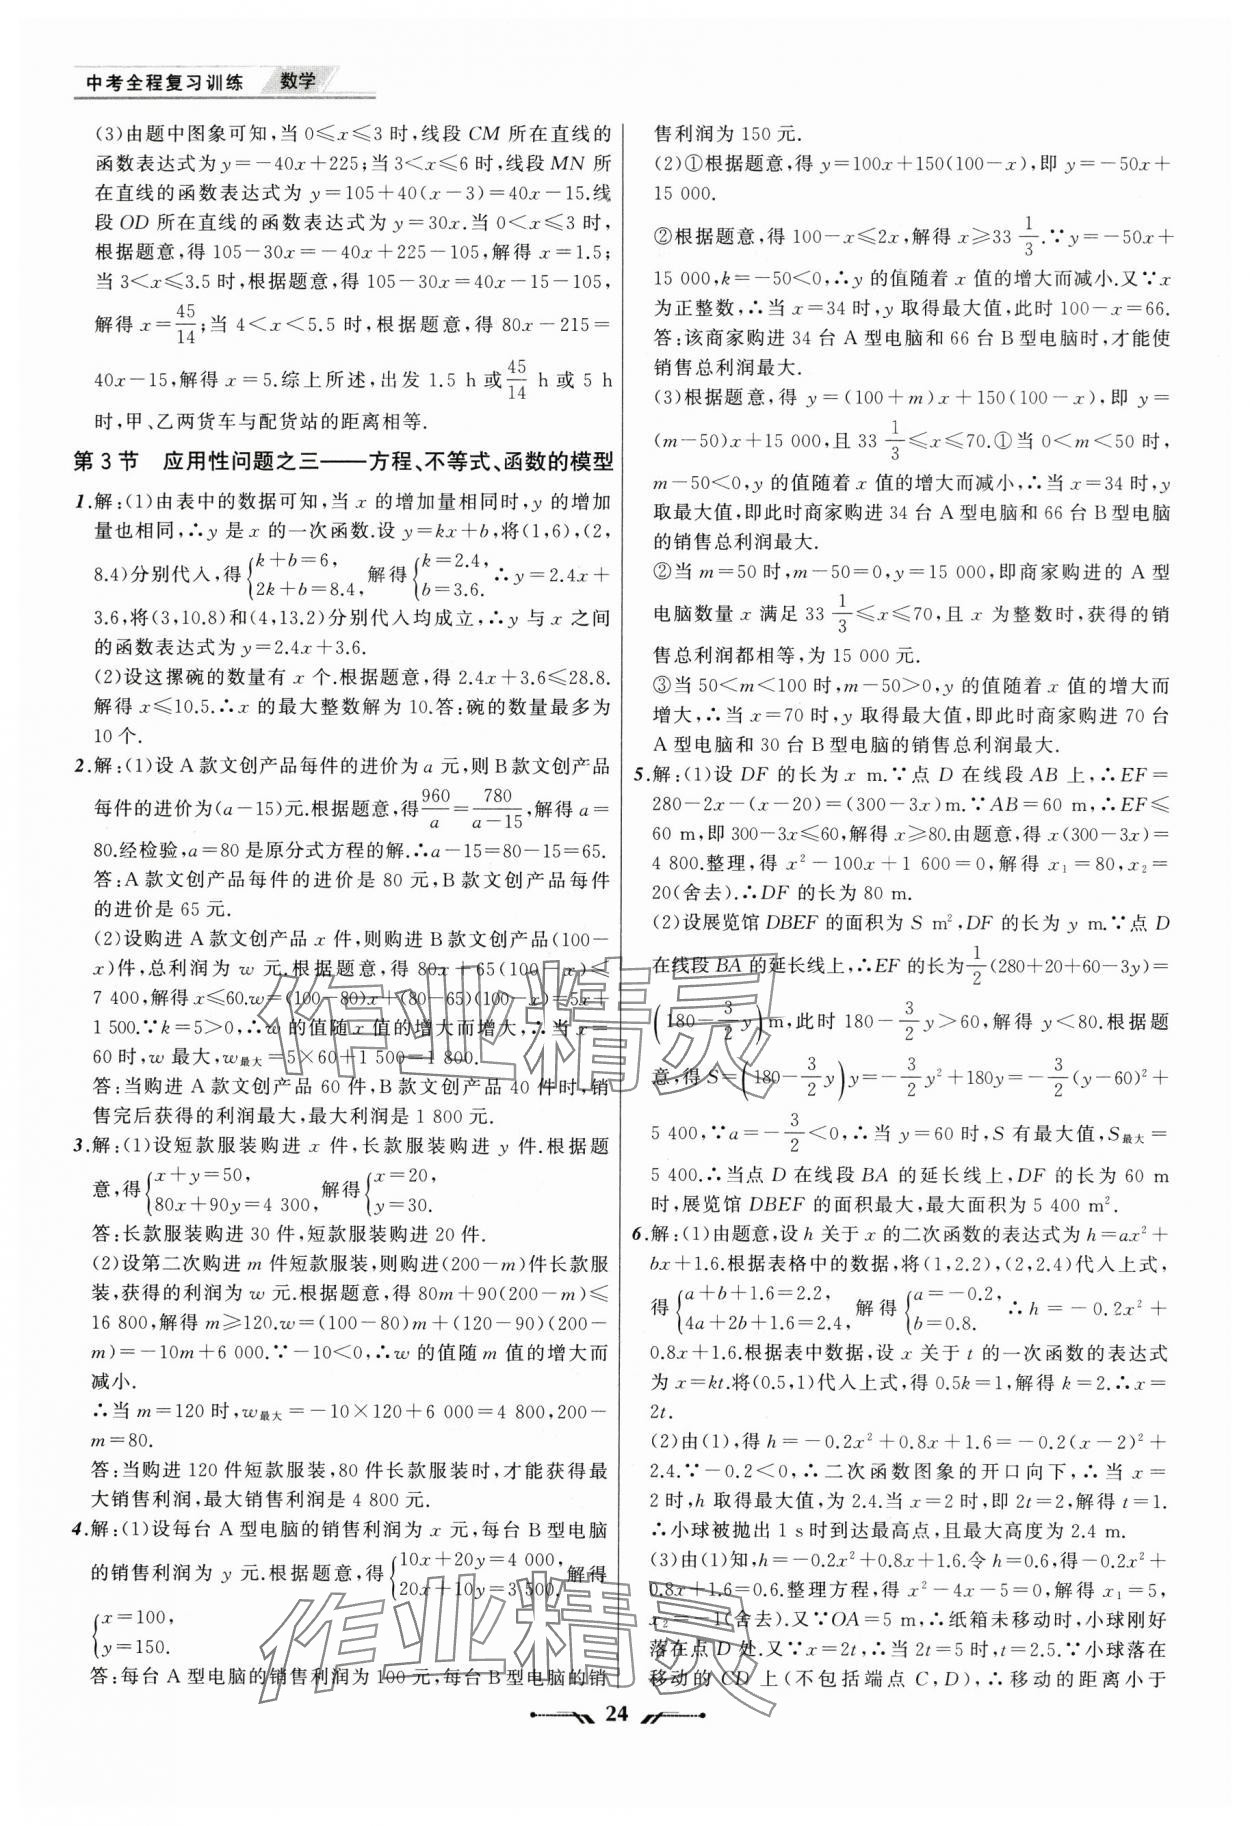 中考全程复习训练 数学
(3)由题中图象可知,当 0≤x≤3 时,线段 CM 所在直线的
函数表达式为 y=-40x+225;当 3<x≤6 时,线段 MN 所
在直线的函数表达式为 y=105+40(x-3)=40x-15.线
段 OD 所在直线的函数表达式为 y=30x.当 0<x≤3 时,
根据题意,得 105-30x=-40x+225-105,解得 x=1.5;
当 3<x≤3.5 时,根据题意,得 105-30x=40x-15-105,
解得 x=45/14;当 4<x<5.5 时,根据题意,得 80x-215=
40x-15,解得 x=5.综上所述,出发 1.5 h 或 45/14 h 或 5 h
时,甲、乙两货车与配货站的距离相等.
第 3 节 应用性问题之三——方程、不等式、函数的模型
1.解:(1)由表中的数据可知,当 x 的增加量相同时,y 的增加
量也相同,∴y 是 x 的一次函数.设 y=kx+b,将(1,6),(2,
8.4)分别代入,得{k+b=6, 2k+b=8.4, 解得{k=2.4, b=3.6. ∴y=2.4x+
3.6,将(3,10.8)和(4,13.2)分别代入均成立,∴y 与 x 之间
的函数表达式为 y=2.4x+3.6.
(2)设这摞碗的数量有 x 个.根据题意,得 2.4x+3.6≤28.8.
解得 x≤10.5.∴x 的最大整数解为 10.答:碗的数量最多为
10 个.
2.解:(1)设 A 款文创产品每件的进价为 a 元,则 B 款文创产品
每件的进价为(a-15)元.根据题意,得960/a=780/(a-15),解得 a=
80.经检验,a=80 是原分式方程的解.∴a-15=80-15=65.
答:A 款文创产品每件的进价是 80 元,B 款文创产品每件
的进价是 65 元.
(2)设购进 A 款文创产品 x 件,则购进 B 款文创产品(100-
x)件,总利润为 w 元.根据题意,得 80x+65(100-x)≤
7 400,解得 x≤60.w=(100-80)x+(80-65)(100-x)=5x+
1 500.∵k=5>0,∴w 的值随 x 值的增大而增大,∴当 x=
60 时,w 最大,w最大=5×60+1 500=1 800.
答:当购进 A 款文创产品 60 件,B 款文创产品 40 件时,销
售完后获得的利润最大,最大利润是 1 800 元.
3.解:(1)设短款服装购进 x 件,长款服装购进 y 件.根据题
意,得{x+y=50, 80x+90y=4 300, 解得{x=20, y=30.
答:长款服装购进 30 件,短款服装购进 20 件.
(2)设第二次购进 m 件短款服装,则购进(200-m)件长款服
装,获得的利润为 w 元.根据题意,得 80m+90(200-m)≤
16 800,解得 m≥120.w=(100-80)m+(120-90)(200-
m)=-10m+6 000.∵-10<0,∴w 的值随 m 值的增大而
减小.
∴当 m=120 时,w最大=-10×120+6 000=4 800,200-
m=80.
答:当购进 120 件短款服装,80 件长款服装时,才能获得最
大销售利润,最大销售利润是 4 800 元.
4.解:(1)设每台 A 型电脑的销售利润为 x 元,每台 B 型电脑
的销售利润为 y 元.根据题意,得{10x+20y=4 000, 20x+10y=3 500, 解得
{x=100, y=150.
答:每台 A 型电脑的销售利润为 100 元,每台 B 型电脑的销
售利润为 150 元.
(2)①根据题意,得 y=100x+150(100-x),即 y=-50x+
15 000.
②根据题意,得 100-x≤2x,解得 x≥33 1/3.∵y=-50x+
15 000,k=-50<0,∴y 的值随着 x 值的增大而减小.又∵x
为正整数,∴当 x=34 时,y 取得最大值,此时 100-x=66.
答:该商家购进 34 台 A 型电脑和 66 台 B 型电脑时,才能使
销售总利润最大.
(3)根据题意,得 y=(100+m)x+150(100-x),即 y=
(m-50)x+15 000,且 33 1/3≤x≤70.①当 0<m<50 时,
m-50<0,y 的值随着 x 值的增大而减小,∴当 x=34 时,y
取最大值,即此时商家购进 34 台 A 型电脑和 66 台 B 型电脑
的销售总利润最大.
②当 m=50 时,m-50=0,y=15 000,即商家购进的 A 型
电脑数量 x 满足 33 1/3≤x≤70,且 x 为整数时,获得的销
售总利润都相等,为 15 000 元.
③当 50<m<100 时,m-50>0,y 的值随着 x 值的增大而
增大,∴当 x=70 时,y 取得最大值,即此时商家购进 70 台
A 型电脑和 30 台 B 型电脑的销售总利润最大.
5.解:(1)设 DF 的长为 x m.∵点 D 在线段 AB 上,∴EF=
280-2x-(x-20)=(300-3x)m.∵AB=60 m,∴EF≤
60 m,即 300-3x≤60,解得 x≥80.由题意,得 x(300-3x)=
4 800.整理,得 x²-100x+1 600=0,解得 x₁=80,x₂=
20(舍去).∴DF 的长为 80 m.
(2)设展览馆 DBEF 的面积为 S m²,DF 的长为 y m.∵点 D
在线段 BA 的延长线上,∴EF 的长为1/2(280+20+60-3y)=
(180-3/2y)m,此时 180-3/2y>60,解得 y<80.根据题
意,得 S=(180-3/2y)y=-3/2y²+180y=-3/2(y-60)²+
5 400,∵a=-3/2<0,∴当 y=60 时,S 有最大值,S最大=
5 400.∴当点 D 在线段 BA 的延长线上,DF 的长为 60 m
时,展览馆 DBEF 的面积最大,最大面积为 5 400 m².
6.解:(1)由题意,设 h 关于 x 的二次函数的表达式为 h=ax²+
bx+1.6.根据表格中的数据,将(1,2.2),(2,2.4)代入上式,
得{a+b+1.6=2.2, 4a+2b+1.6=2.4, 解得{a=-0.2, b=0.8. ∴h=-0.2x²+
0.8x+1.6.根据表中数据,设 x 关于 t 的一次函数的表达式
为 x=kt.将(0.5,1)代入上式,得 0.5k=1,解得 k=2.∴x=
2t.
(2)由(1),得 h=-0.2x²+0.8x+1.6=-0.2(x-2)²+
2.4.∵-0.2<0,∴二次函数图象的开口向下,∴当 x=
2 时,h 取得最大值,为 2.4.当 x=2 时,即 2t=2,解得 t=1.
∴小球被抛出 1 s 时到达最高点,且最大高度为 2.4 m.
(3)由(1)知,h=-0.2x²+0.8x+1.6.令 h=0.6,得-0.2x²+
0.8x+1.6=0.6.整理方程,得 x²-4x-5=0,解得 x₁=5,
x₂=-1(舍去).又∵OA=5 m,∴纸箱未移动时,小球刚好
落在点 D 处.又∵x=2t,∴当 2t=5 时,t=2.5.∵小球落在
移动的 CD 上(不包括端点 C,D),∴移动的距离小于
24
作业精灵
作业精灵